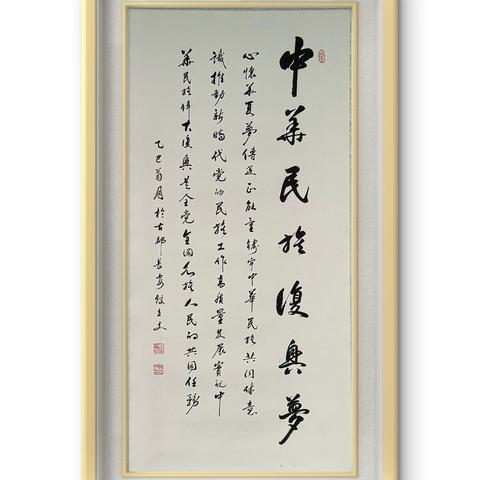 中華民族復興夢
心懷華夏夢傳遞正能量鑄牢中華民族共同体意
識推動新時代党的民族工作高質量發展實現中
華民族偉大復興是全党全國各族人民的共同任務
乙巳菊月於古都長安